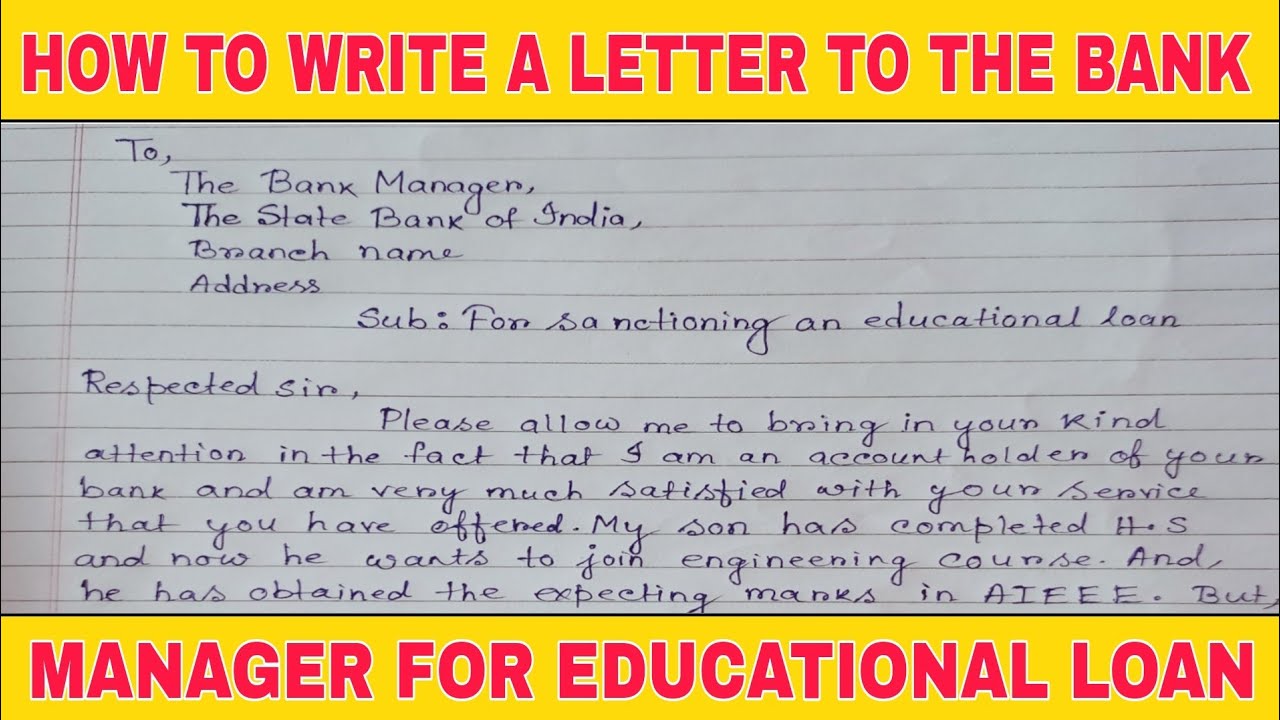 HOW TO WRITE A LETTER TO THE BANK
To,
The Bank Manager,
The State Bank of India,
Branch name
Address
Sub: For sanctioning an educational loan
Respected Sir,
Please allow me to bring in your kind
attention in the fact that I am an account holder of your
bank and am very much satisfied with your service
that you have offered. My son has completed H.S
and now he wants to join engineering course. And,
he has obtained the expecting marks in AIEEE. But,
MANAGER FOR EDUCATIONAL LOAN